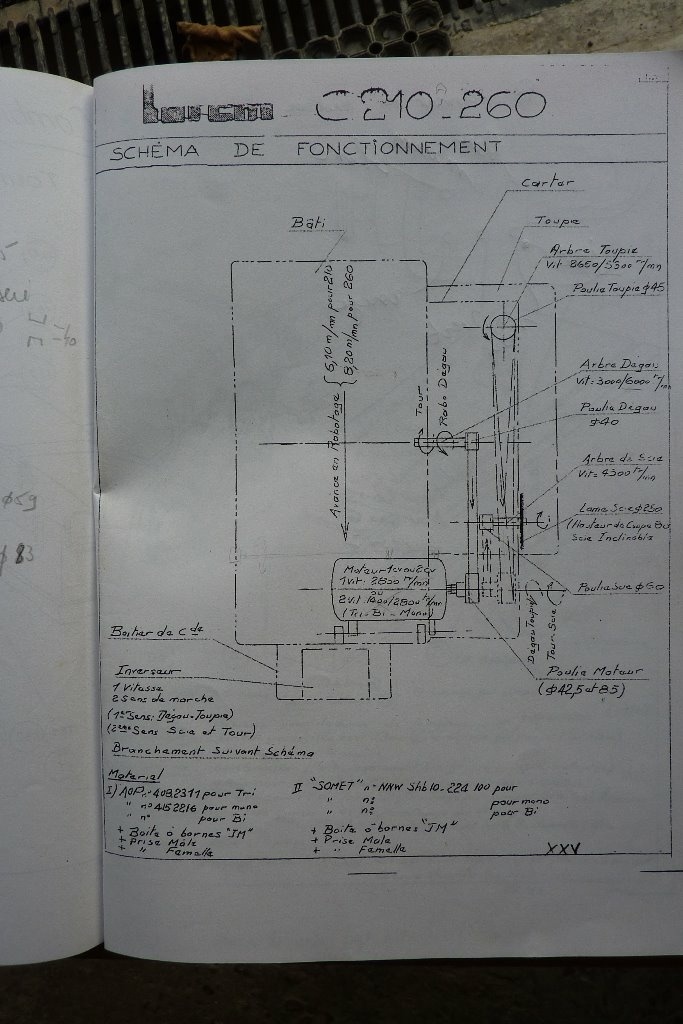 lurem - C210-260
SCHÉMA DE FONCTIONNEMENT
Carter
Bâti
Toupie
Arbre Toupie
Vit: 8650/5300 tr/mn
Poulie Toupie φ45
Avance en Rabotage { 6,10 m/mn pour 210
8,20 m/mn pour 260
Tour
Rabo Dégau
Arbre Dégau
Vit: 3000/6000 tr/mn
Poulie Dégau
φ40
Arbre de Scie
Vit: 4300 tr/mn
Lame Scie φ250
(Hauteur de Coupe 80
Scie Inclinable
Poulie Scie φ60
Moteur 1cv ou 2cv
1 Vit: 2800 tr/mn
ou
2 Vit: 1400/2800 tr/mn
(Tri - Bi - Mono)
Dégau Toupie
Tour Scie
Poulie Moteur
(φ42,5 et 85)
Boitier de Cde
Inverseur
1 Vitesse
2 Sens de marche
(1er Sens: Dégau-Toupie)
(2ème Sens Scie et Tour)
Branchement Suivant Schéma
Materiel
I) AOP n° 4092311 pour Tri
" n° 4152216 pour mono
" n° pour Bi
+ Boite à bornes "JM"
+ Prise Mâle
+ " Femelle
II "SOMET" n° NNW Shb10-224 100 pour
" n° pour mono
" n° pour Bi
+ Boite à bornes "JM"
+ Prise Male
+ " Femelle
XXV
φ59
φ 83